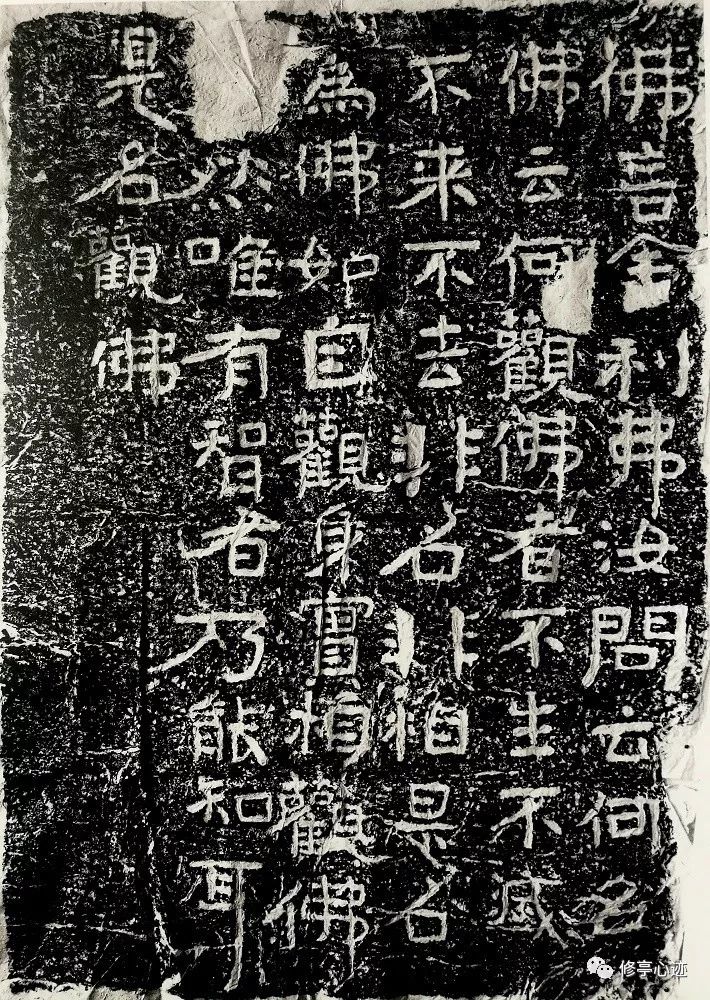 佛言舍利弗汝問云何名
佛云何觀佛者不生不滅
不来不去非名非相是名
為佛如自觀身實相觀佛
然唯有智者乃能知耳
是名觀佛
修亭心迹